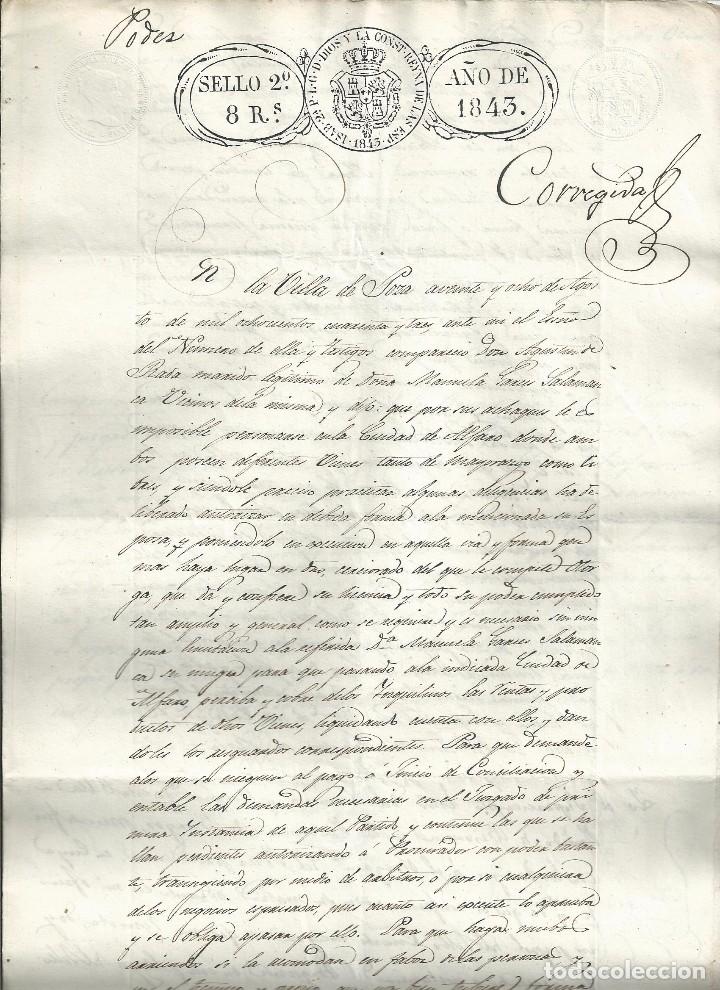 Poder
SELLO 2º
8 R.s
ISAB. 2ª P. L. G. D. DIOS Y LA CONST. REYNA DE LAS ESP. 1843
AÑO DE
1843.
Corregida
En la Villa de Poza a veinte y ocho de Agos
to de mil ochocientos cuarenta y tres, ante mi el Essno
del Numero de ella y testigos comparecio Don Agustin de
Rada marido legitimo de Doña Manuela Garces Salaman
ca Vecinos de la misma, y dijo: que por sus achaques le es
imposible personarse en la Ciudad de Alfaro donde am
bos poseen diferentes Vienes tanto de Mayorazgo como li
bres y siendole preciso practicar algunas diligencias ha de
liberado autorizar en debida forma a la mencionada su Es
posa, y poniendolo en execucion en aquella via y forma que
mas haya lugar en dro, cerciorado del que le compete Otor
ga, que da y confiere su licencia y todo su poder cumplido
tan amplio y general como se requiere y es necesario sin nin
guna limitacion a la referida D.ª Manuela Garces Salaman
ca su muger para que pasando a la indicada Ciudad de
Alfaro perciba y cobre de los Inquilinos las rentas y pro
ductos de dhos Vienes, liquidando cuentas con ellos, y dan
doles los resguardos correspondientes. Para que demande
a los que se nieguen al pago á Juicio de Conciliacion y
entable las demandas necesarias en el Juzgado de pri
mera Instancia de aquel Partido y continue las que se ha
llan pendientes autorizando á Procurador con poder bastan
te, transigiendo por medio de arbitros, ó por si cualquiera
de los negocios espresados, pues cuanto asi execute lo aprueba
y se obliga a pasar por ello. Para que haga nuebos
arriendos si la acomodan en fabor de las personas y
todocoleccion.net